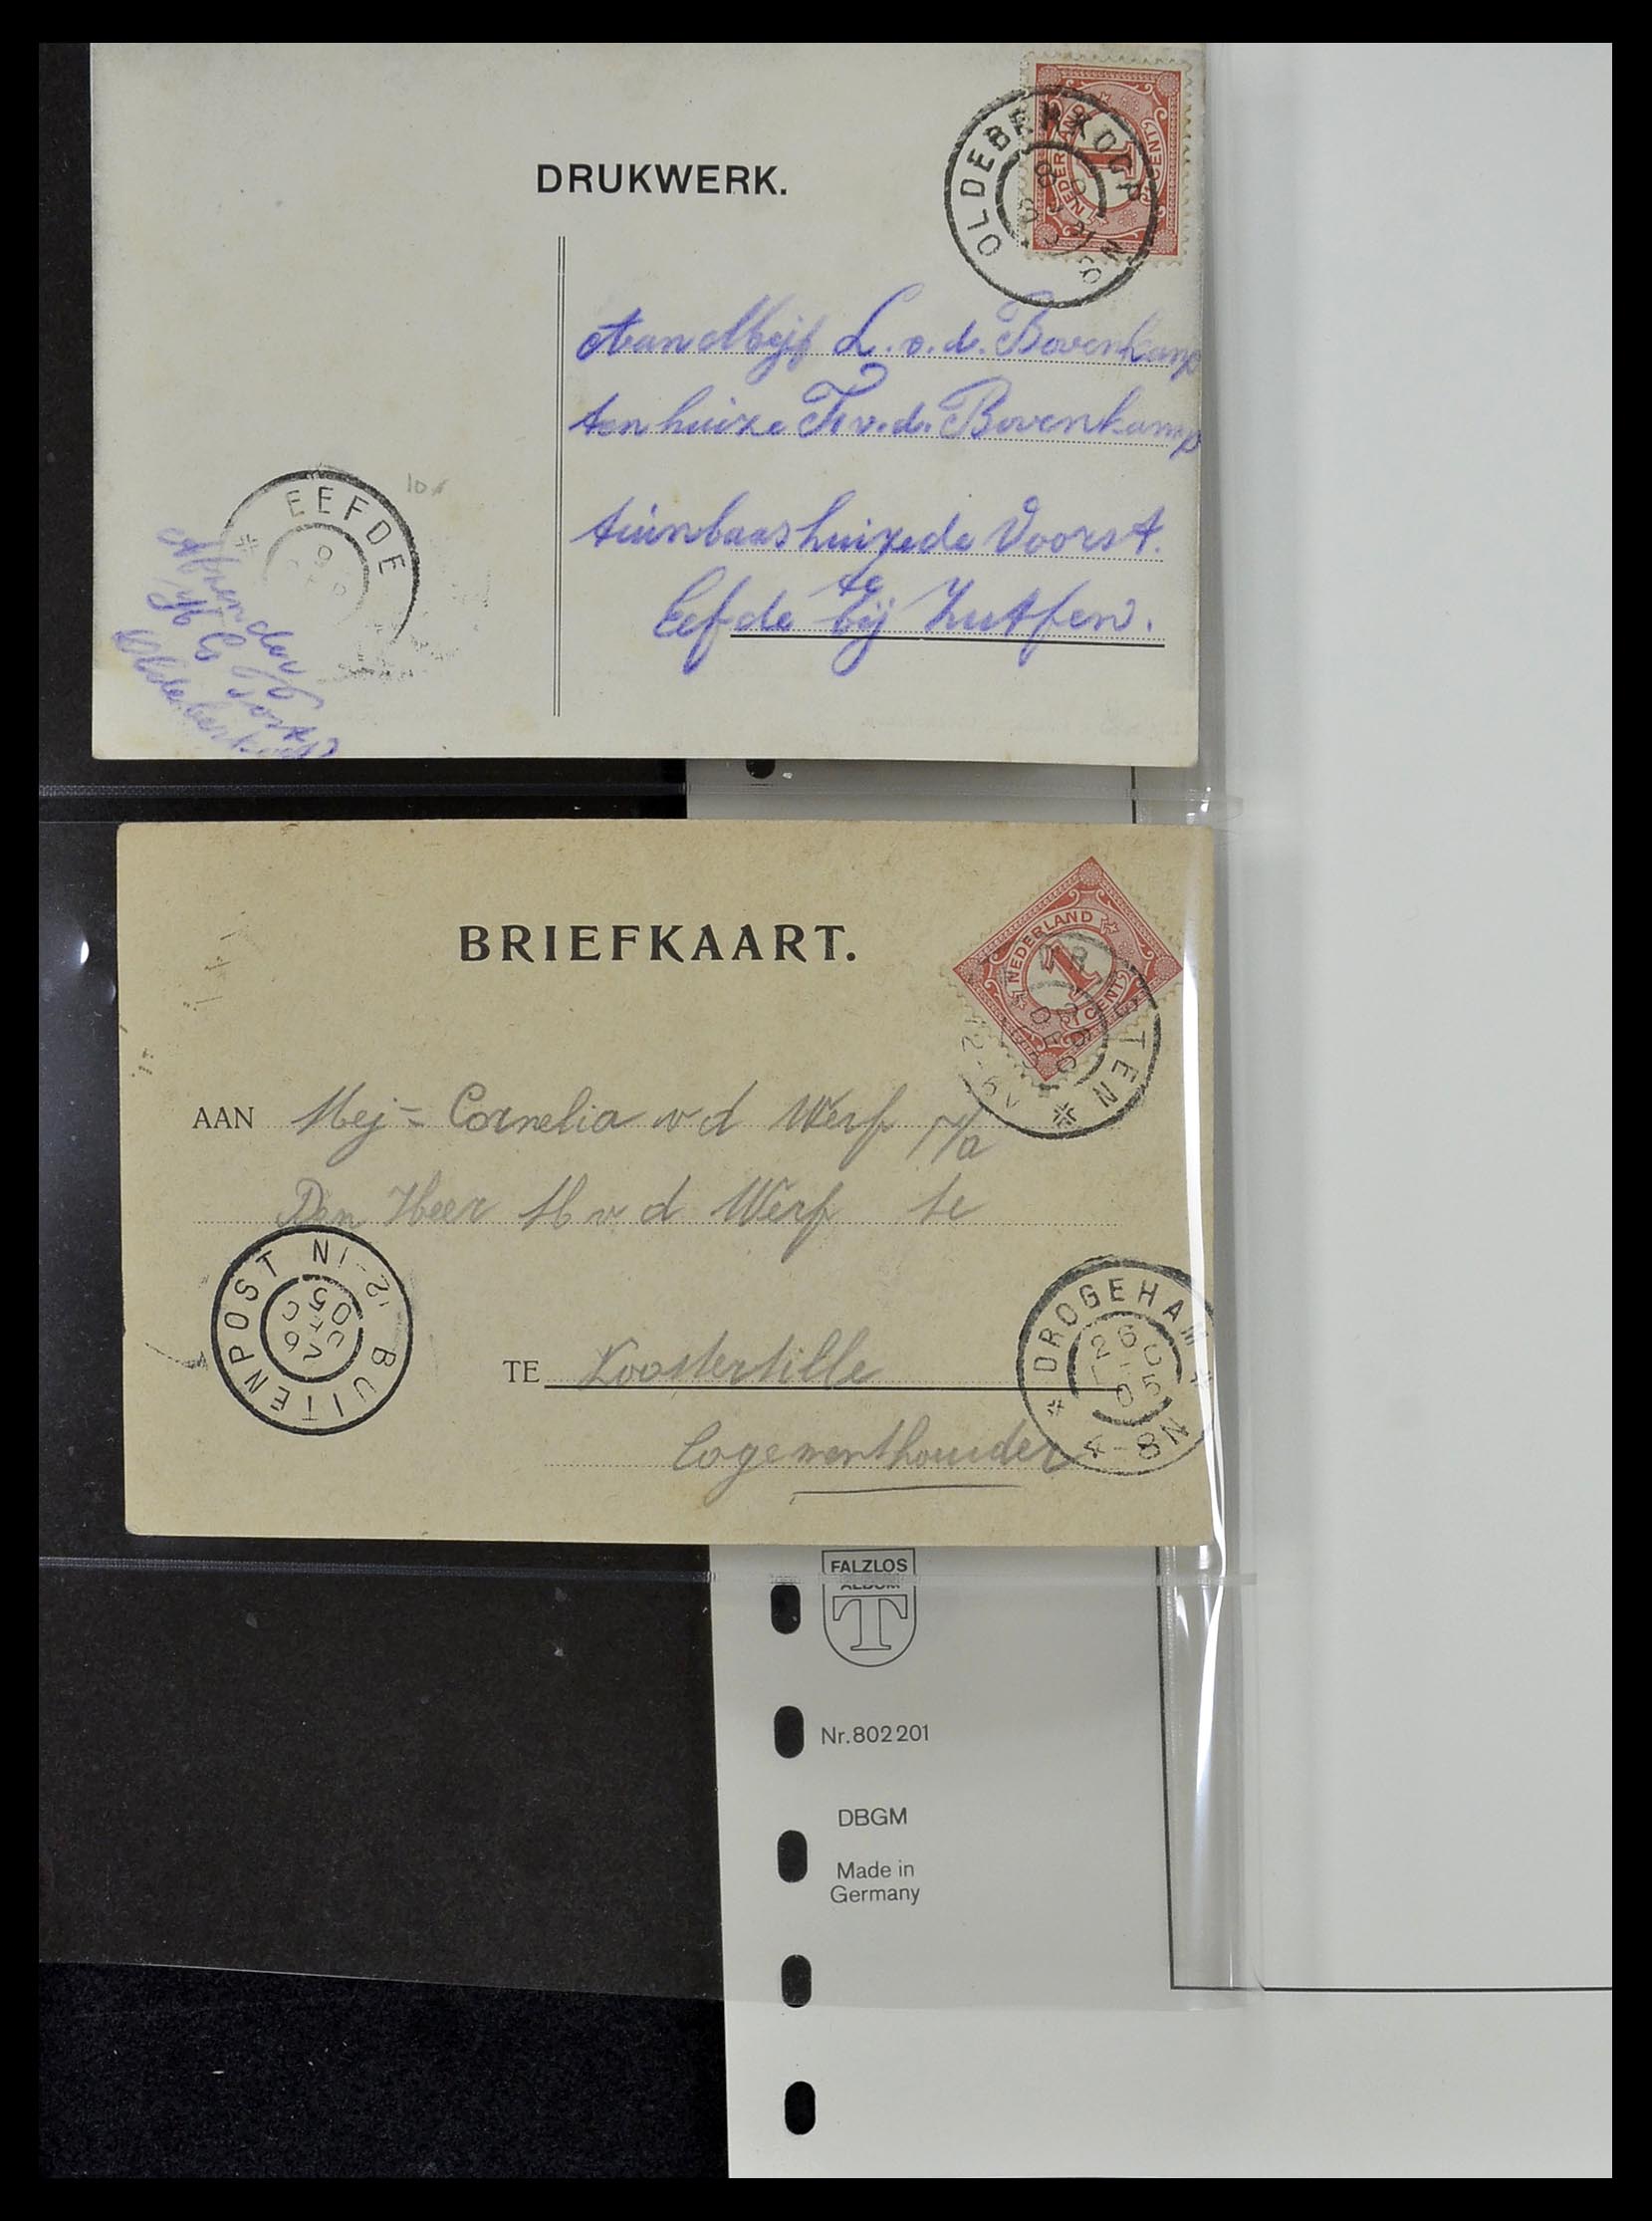 DRUKWERK.
NEDERLAND
1
CENT
OLDEBERKOOP
Aan Mejf L. v. d. Bovenkamp
ten huize F v. d. Bovenkamp
tuinbaas huize de Voorst.
te
Eefde bij Zutfen.
EEFDE
9
10
Afzender
Oldeberkoop
BRIEFKAART.
NEDERLAND
1
1 CENT
TEN
AAN Mej= Cornelia v d Werf p/a
Den Heer H v d Werf te
BUITENPOST
12-1N
26 OCT
05
DROGEHAM
26 OCT
05
4-8N
TE Koostertille
Logementhouder
FALZLOS
ALBUM
T
Nr.802201
DBGM
Made in
Germany